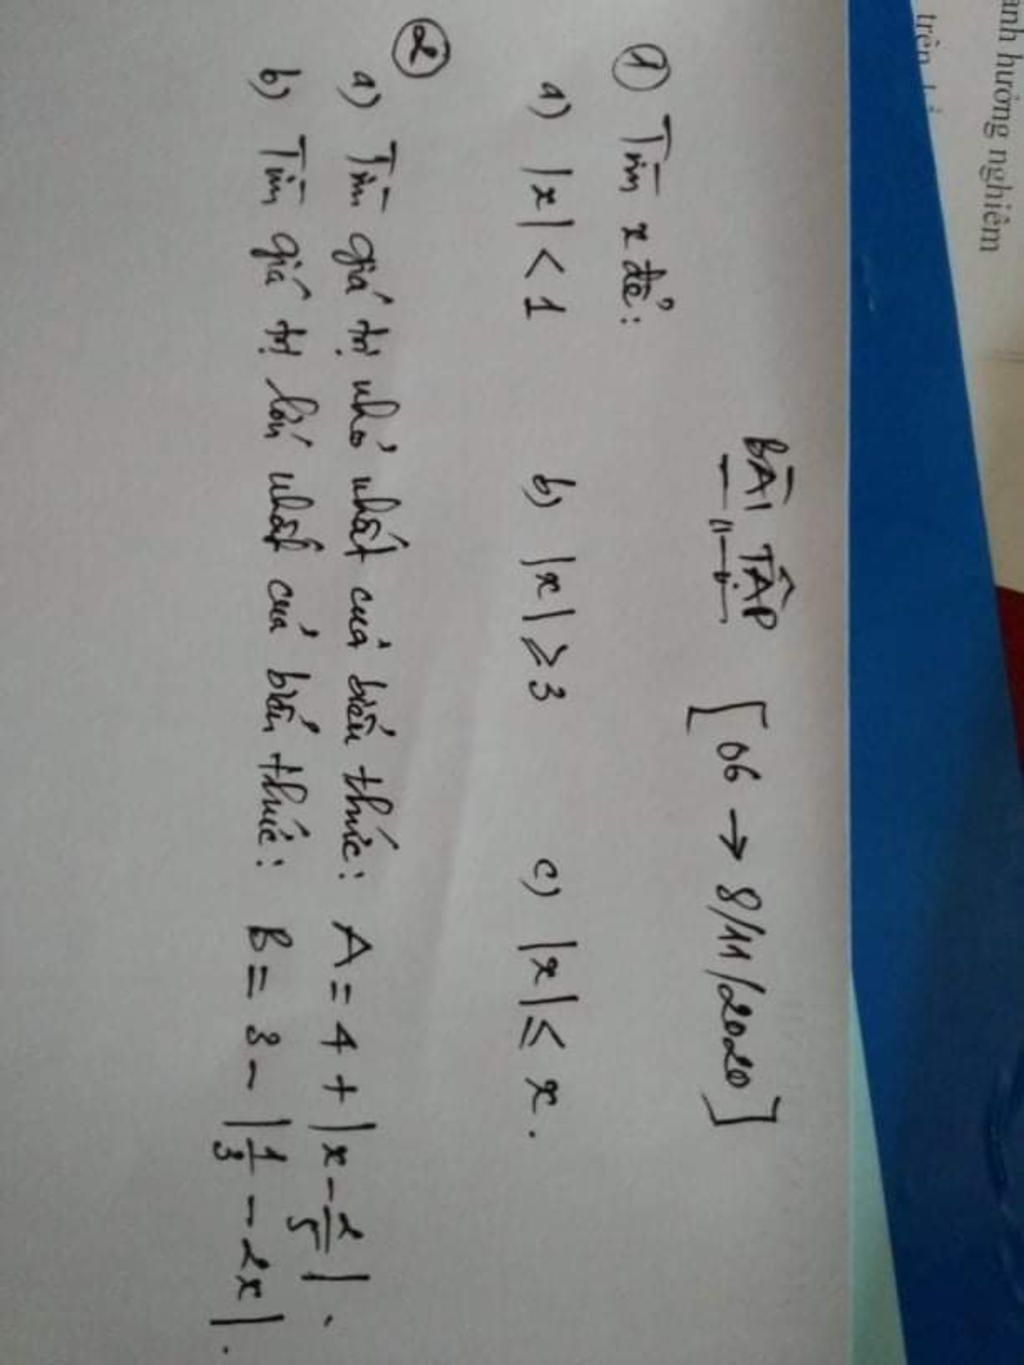 ảnh hưởng nghiêm
trên
BÀI TẬP [06 → 8/11/2020]
① Tìm x để:
a) |x| < 1 b) |x| ⩾ 3 c) |x| ≤ x.
②
a) Tìm giá trị nhỏ nhất của biểu thức: A = 4 + |x - 2/5|.
b) Tìm giá trị lớn nhất của biểu thức: B = 3 - |1/3 - 2x|.